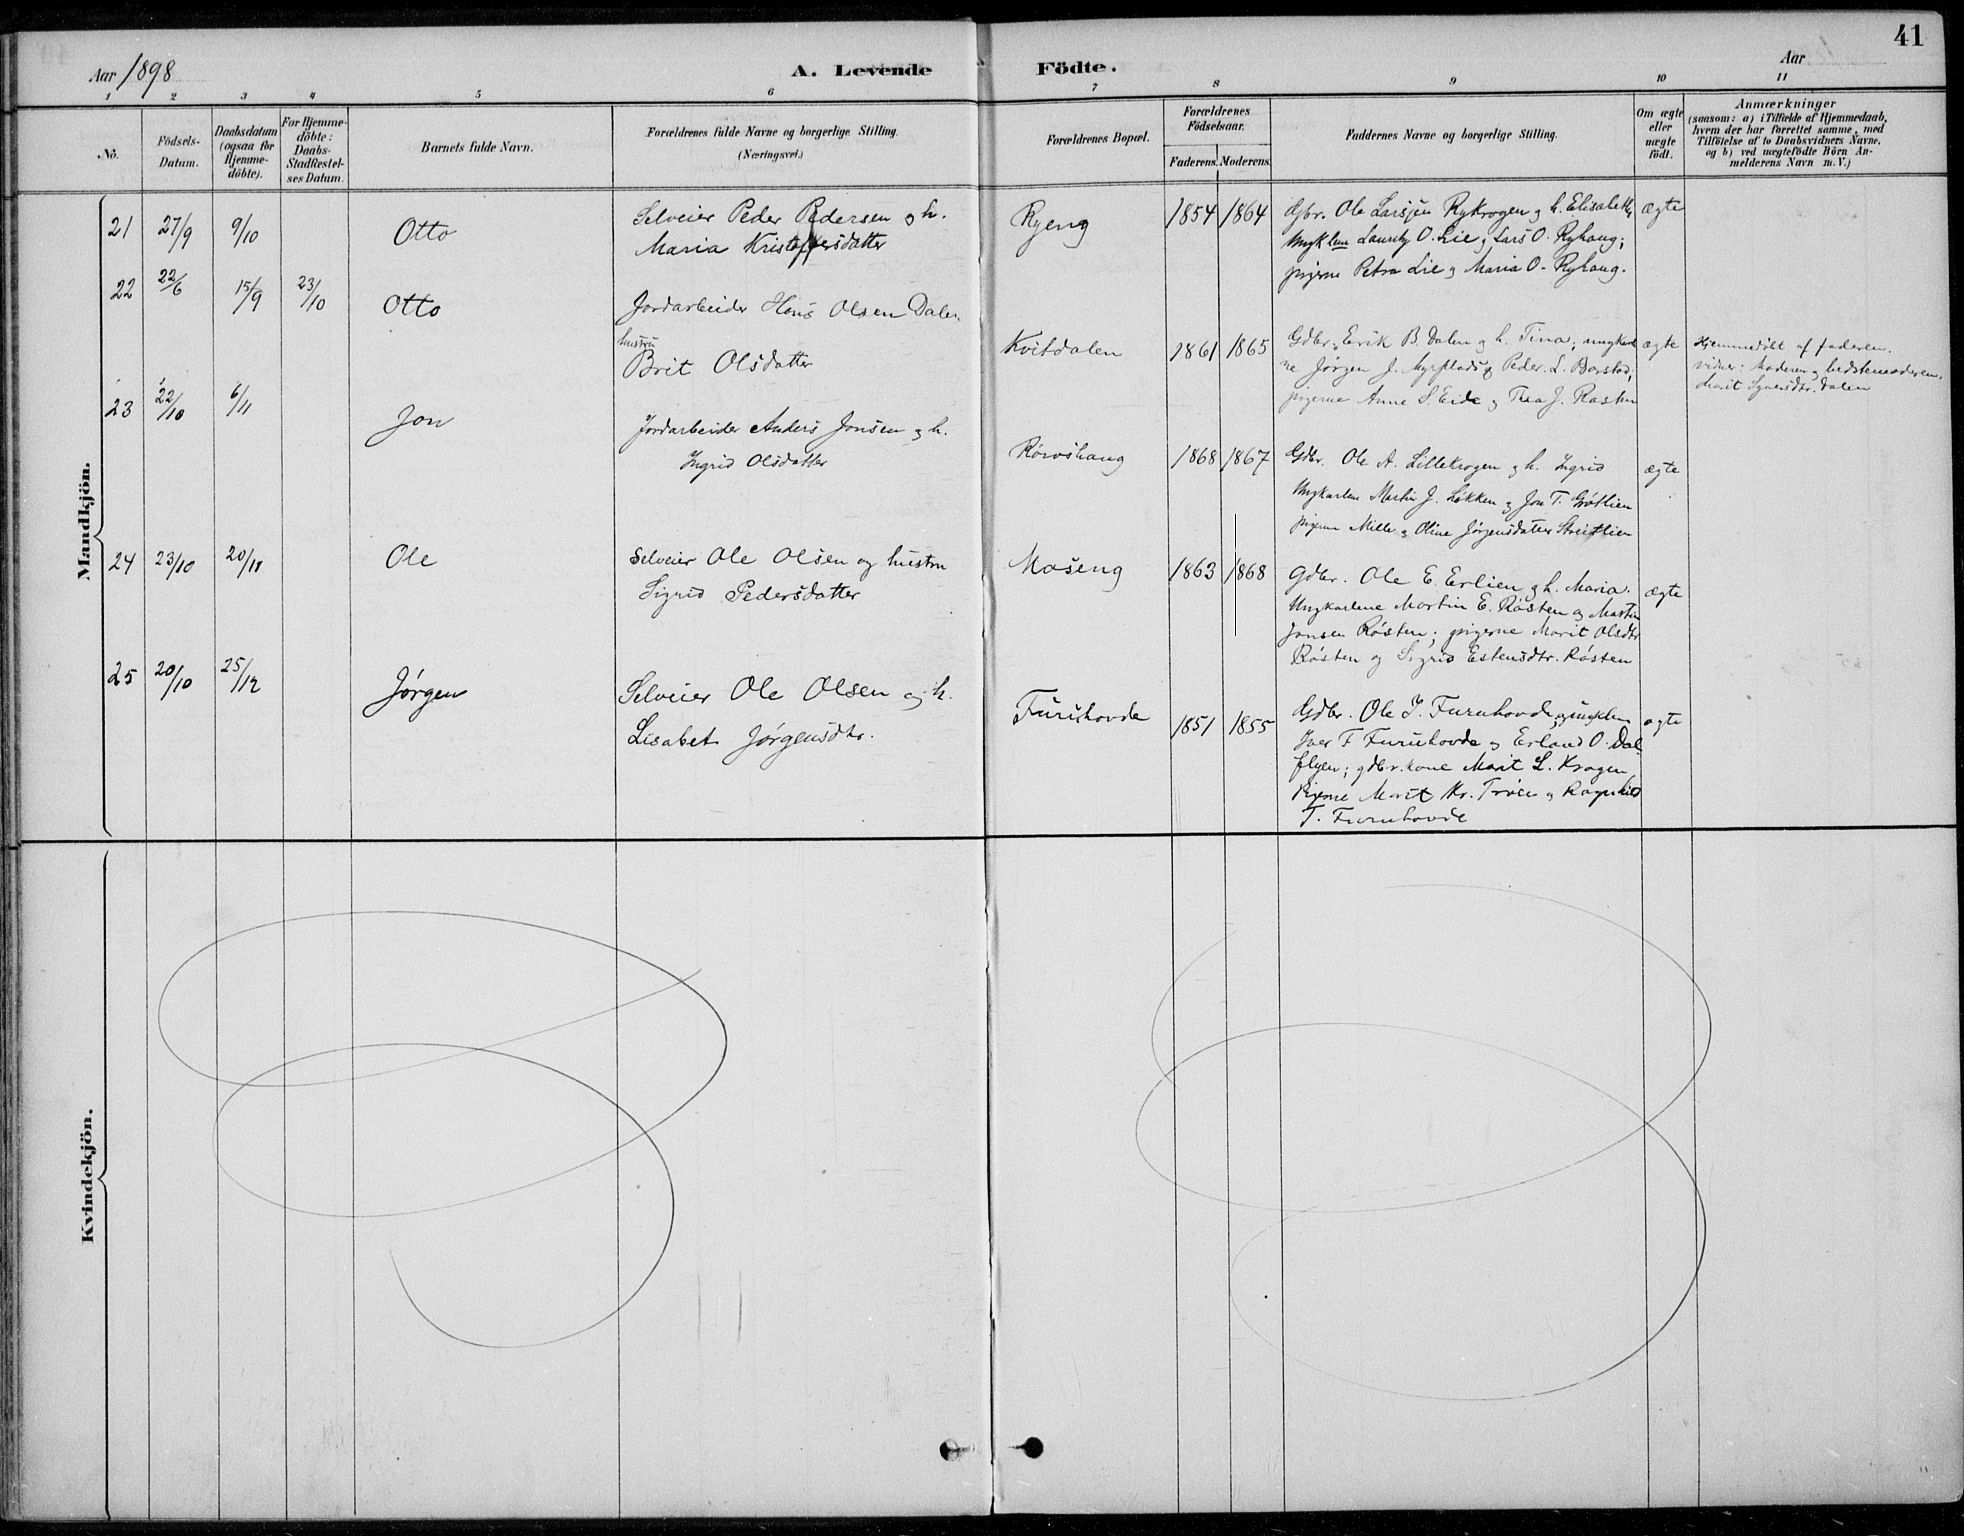 41
Aar 1898
A. Levende Födte.
Aar
1 2 3 4 5 6 7 8 9 10 11
No.
Födsels-Datum.
Daabsdatum (ogsaa for Hjemme-döbte).
For Hjemme-döbte: Daabs-Stadfestel-ses Datum.
Barnets fulde Navn.
Forældrenes fulde Navne og borgerlige Stilling.
(Næringsvei.)
Forældrenes Bopæl.
Forældrenes Födselsaar.
Faderens. Moderens.
Faddernes Navne og borgerlige Stilling.
Om ægte eller uægte födt.
Anmærkninger
(saasom: a) i Tilfælde af Hjemmedaab,
hvem der har forrettet samme, med
Tilföielse af to Daabsvidners Navne,
og b) ved uægtefödte Börn An-
melderens Navn m. V.)
Mandkjön.
21 27/9 9/10 Otto
Selveier Peder Pedersen og h.
Maria Kristoffersdatter
Ryeng 1854 1864
Gbr. Ole Larsen Rykrogen og h. Elisabeth,
Ungklne Lauritz O. Lie og Lars O. Ryhaug;
pigerne Petra Lie og Maria O. Ryhaug.
ægte
22 22/6 15/9 23/10 Otto
Jordarbeider Hans Olsen Dalen
hustru
Brit Olsdatter
Kvitdalen 1861 1865
Gdbr. Erik B. Dalen og h. Tina; ungkarle
ne Jørgen J. Myrplads og Peder L. Borstad;
pigerne Anne S. Eide og Thea J. Rasten
ægte
Hjemmedøbt af faderen.
vidner: Moderen og bedstemoderen
Marit Syversdtr. Dalen
23 22/10 6/11 Jon
Jordarbeider Anders Jonsen og h.
Ingrid Olsdatter
Rövshaug 1868 1867
Gdbr. Ole A. Lillekrogen og h. Ingrid
Ungkarlene Martin J. Løkken og Jon T. Grötlien
pigerne Mille og Oline Jørgensdatter Streitlien
ægte
24 23/10 20/11 Ole
Selveier Ole Olsen og hustru
Sigrid Pedersdatter
Moseng 1863 1868
Gdbr. Ole E. Erlien og h. Maria.
Ungkarlene Martin E. Røsten og Martin
Jonsen Røsten; pigerne Marit Olsdtr
Røsten og Sigrid Estensdtr. Røsten
ægte
25 20/10 25/12 Jørgen
Selveier Ole Olsen og h.
Lisabet Jørgensdtr.
Furuhovde 1851 1855
Gdbr. Ole I. Furuhovde og ungklne
Iver T Furuhovde og Erland O. Dal
flyen; gdbr.kone Marit L. Krogen,
Pigerne Marit Kr. Tröen og Ragnhild
T. Furuhovde
ægte
Kvindekjön.